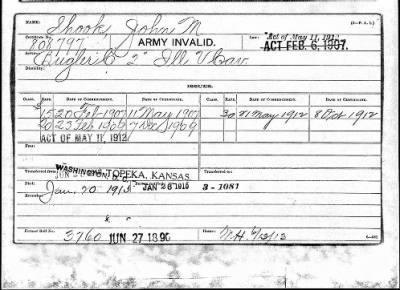 NAME: Shook, John M. (3-P. A. L.)
Certificate No. 808797. ARMY INVALID. Law: Act of May 11, 1912
ACT FEB. 6, 1907.
Bugler C 2" Ill V Cav.
Disability:
CLASS. RATE. DATE OF COMMENCEMENT. DATE OF CERTIFICATE. CLASS. RATE. DATE OF COMMENCEMENT. DATE OF CERTIFICATE.
15 20 Feb 1907 11 May 1907 30 21 May 1912 8 Oct 1912
20 23 Feb 1909 7 Dec 1909
ACT OF MAY 11, 1912
Fees:
Transferred from WASHINGTON, D.C. TOPEKA, KANSAS. Transferred to
Died: Jan. 20 1915 JAN 26 1915 3-1081
Reissue:
Former Roll No. 3760 JUN 27 1890 Home: